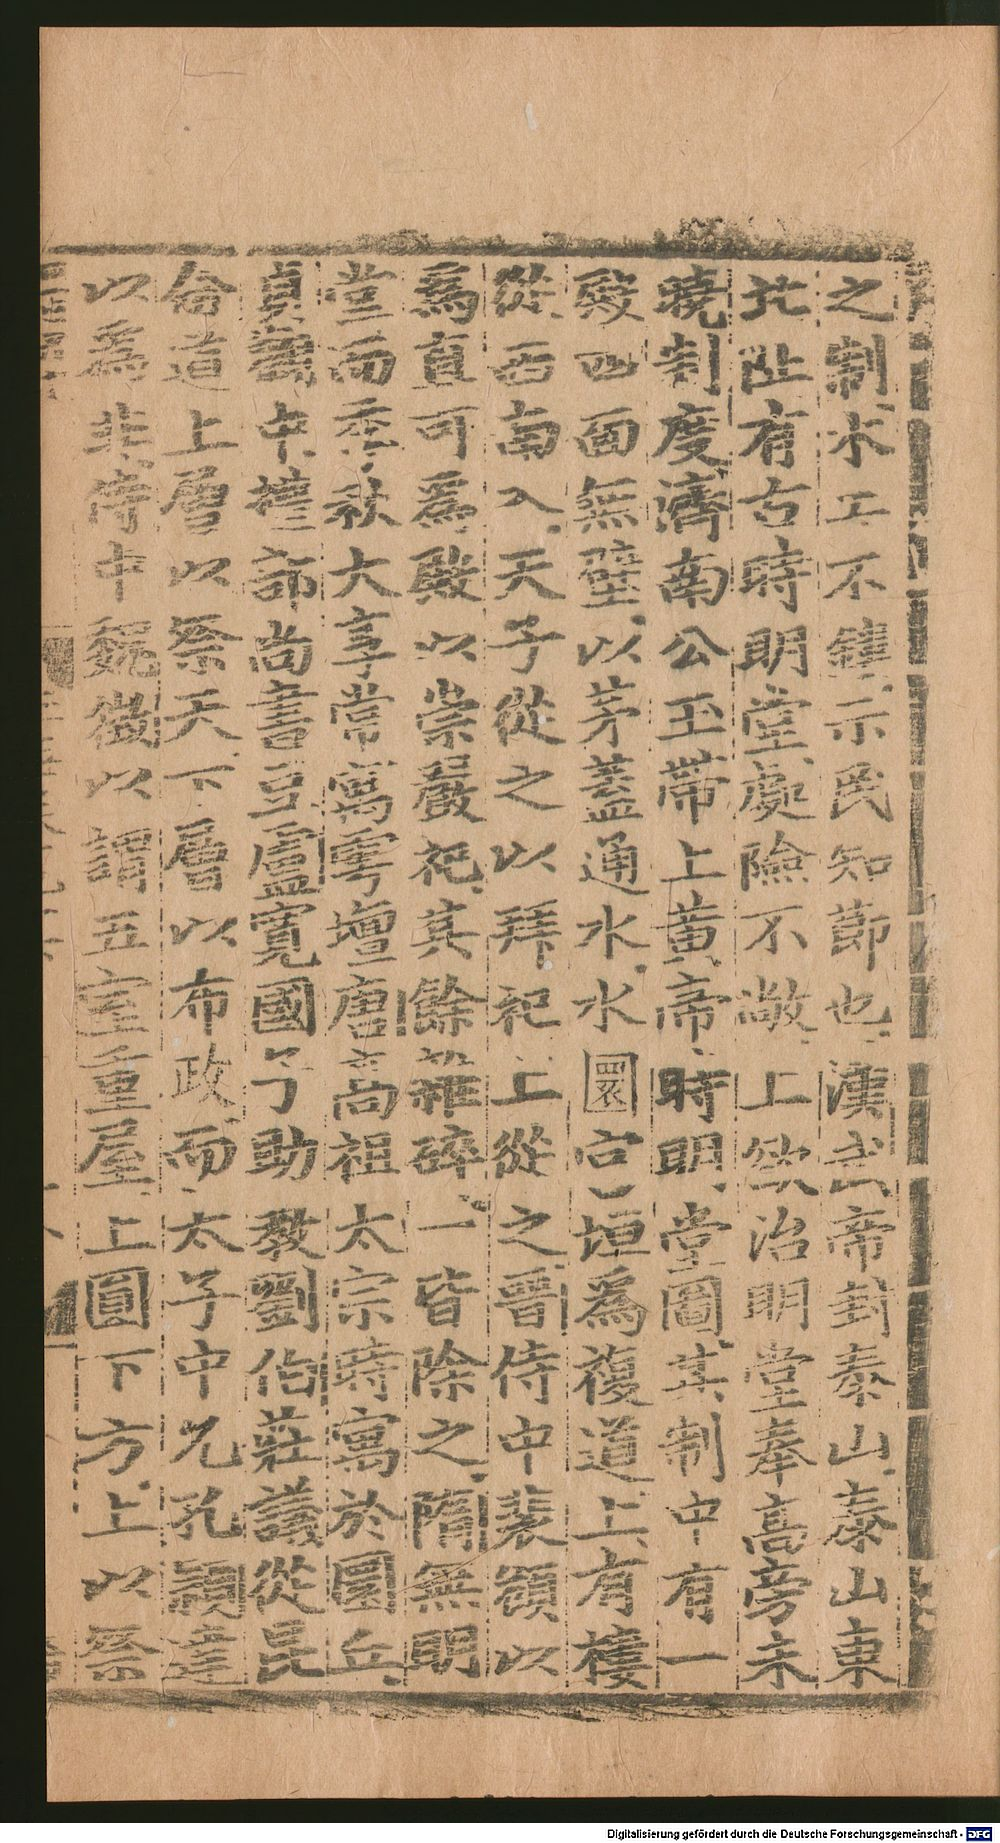 之制木工不鏤示民知節也漢武帝封泰山泰山東
北阯有古時明堂處險不敞上欲治明堂奉高旁未
曉制度濟南公玉帶上黃帝時明堂圖其制中有一
殿四面無壁以茅蓋通水水圜宮垣爲複道上有樓
從西南入天子從之以拜祀上從之晉侍中裴頠以
爲直可爲殿以崇嚴祀其餘雜碎一皆除之隋無明
堂而季秋大享常寓雩壇唐高祖太宗時寓於圜丘
貞觀中禮部尚書豆盧寬國子助教劉伯莊議從昆
侖道上層以祭天下層以布政而太子中允孔穎達
以爲非侍中魏徵以謂五室重屋上圓下方上以祭
Digitalisierung gefördert durch die Deutsche Forschungsgemeinschaft - DFG